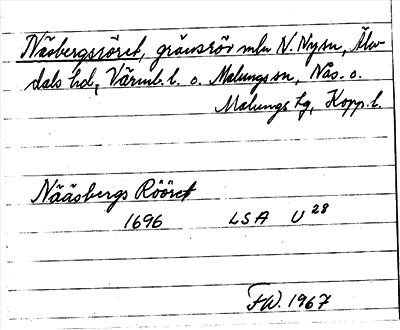 Näsbergsröret, gränsrös mln N. Nysn, Älv-
dals hd, Värml. l. o. Malungs sn, Nås o.
Malungs tg, Kopp. l.
Nääsbergs Rööret
1696 LSA U 28
FW. 1967